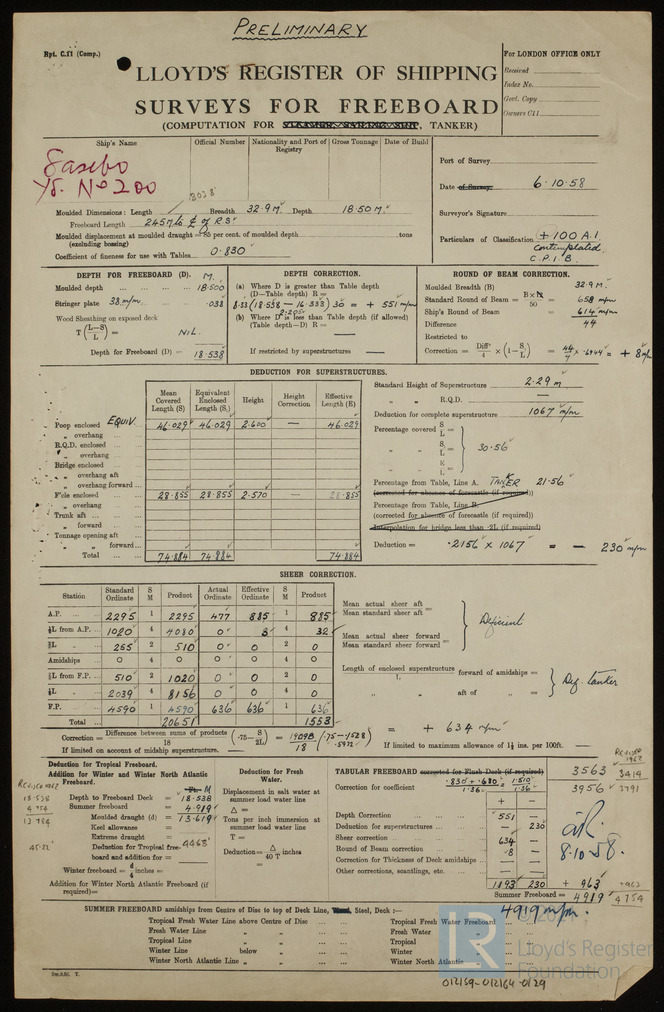 PRELIMINARY
Rpt. C.11 (Comp.)
For LONDON OFFICE ONLY
Received
Index No.
Govt. Copy
Owners C11
LLOYD'S REGISTER OF SHIPPING
SURVEYS FOR FREEBOARD
(COMPUTATION FOR STEAMER, SAILING SHIP, TANKER)
Ship's Name
Official Number
Nationality and Port of Registry
Gross Tonnage
Date of Build
Sasebo
Yd. No 200
Port of Survey
Date of Survey 6.10.58
Surveyor's Signature
Particulars of Classification +100 A.1
contemplated
C.P.I B.
Moulded Dimensions: Length Breadth 32.9 M. Depth 18.50 M.
Freeboard Length 245 M
Moulded displacement at moulded draught = 85 per cent. of moulded depth tons
(excluding bossing)
Coefficient of fineness for use with Tables 0.830
DEPTH FOR FREEBOARD (D). M.
Moulded depth 18.500
Stringer plate 38 m/m .038
Wood Sheathing on exposed deck
T (L-S/L) = NIL.
Depth for Freeboard (D) = 18.538
DEPTH CORRECTION.
(a) Where D is greater than Table depth
(D—Table depth) R =
8.33 (18.538 - 16.333) 30 = + 551 m/m
2.205
(b) Where D is less than Table depth (if allowed)
(Table depth—D) R =
If restricted by superstructures
ROUND OF BEAM CORRECTION.
Moulded Breadth (B) 32.9 M.
Standard Round of Beam = B×12/50 = 658 m/m
Ship's Round of Beam = 614 m/m
Difference 44
Restricted to
Correction = Diff/4 × (1 - S/L) = 44/4 × .6944 = + 8 m/m
DEDUCTION FOR SUPERSTRUCTURES.
Mean Covered Length (S)
Equivalent Enclosed Length (S₁)
Height
Height Correction
Effective Length (E)
Poop enclosed EQUIV. 46.029 46.029 2.600 — 46.029
„ overhang
R.Q.D. enclosed
„ overhang
Bridge enclosed
„ overhang aft
„ overhang forward
F'cle enclosed 28.855 28.855 2.570 — 28.855
„ overhang
Trunk aft
„ forward
Tonnage opening aft
„ „ forward
Total 74.884 74.884 74.884
Standard Height of Superstructure 2.29 m
„ „ R.Q.D. —
Deduction for complete superstructure 1067 m/m
Percentage covered S/L =
„ S₁/L = 30.56
„ E/L =
Percentage from Table, Line A. TANKER 21.56
(corrected for absence of forecastle (if required))
Percentage from Table, Line B.
(corrected for absence of forecastle (if required))
Interpolation for bridge less than .2L (if required)
Deduction = .2156 × 1067 = — 230 m/m
SHEER CORRECTION.
Station
Standard Ordinate
S M
Product
Actual Ordinate
Effective Ordinate
S M
Product
A.P. 2295 1 2295 477 885 1 885
⅙L from A.P. 1020 4 4080 0 8 4 32
⅓L „ 255 2 510 0 0 2 0
Amidships 0 4 0 0 0 4 0
⅓L from F.P. 510 2 1020 0 0 2 0
⅙L „ 2039 4 8156 0 0 4 0
F.P. 4590 1 4590 636 636 1 636
Total 20651 1553
Mean actual sheer aft
Mean standard sheer aft =
Mean actual sheer forward
Mean standard sheer forward =
Deficient
Length of enclosed superstructure forward of amidships =
L
„ „ aft of „ =
Def. tanker
Correction = Difference between sums of products/18 (.75 - S/2L) = 19098/18 (.75 - .1528) = + 634 m/m
.5972
If limited on account of midship superstructure.
If limited to maximum allowance of 1½ ins. per 100ft.
Deduction for Tropical Freeboard.
Addition for Winter and Winter North Atlantic Freeboard.
M
Depth to Freeboard Deck = 18.538
Summer freeboard = 4.919
Moulded draught (d) = 13.619
Keel allowance =
Extreme draught =
Deduction for Tropical freeboard and addition for = 4468
Winter freeboard = d/4 inches =
Addition for Winter North Atlantic Freeboard (if required) =
REVISED 1962
18.538
4.754
13.784
Deduction for Fresh Water.
Displacement in salt water at summer load water line
Δ =
Tons per inch immersion at summer load water line
T =
Deduction = Δ/40 T inches
=
TABULAR FREEBOARD corrected for Flush Deck (if required) 3563
Correction for coefficient .830 + .680 / 1.36 = 1.510 / 1.36 3956
REVISED 1962
3414
3791
+ —
Depth Correction 551
Deduction for superstructures — 230
Sheer correction 634
Round of Beam correction 8
Correction for Thickness of Deck amidships
Other corrections, scantlings, etc.
1193 230 + 963 +963
Summer Freeboard = 4919 4754
8.10.58.
SUMMER FREEBOARD amidships from Centre of Disc to top of Deck Line, Wood, Steel, Deck:— 4919 m/m.
Tropical Fresh Water Line above Centre of Disc
Fresh Water Line „ „
Tropical Line „ „
Winter Line below „
Winter North Atlantic Line „ „
Tropical Fresh Water Freeboard
Fresh Water „
Tropical „
Winter „
Winter North Atlantic „
LR
Lloyd's Register
Foundation
012159-012164-0129